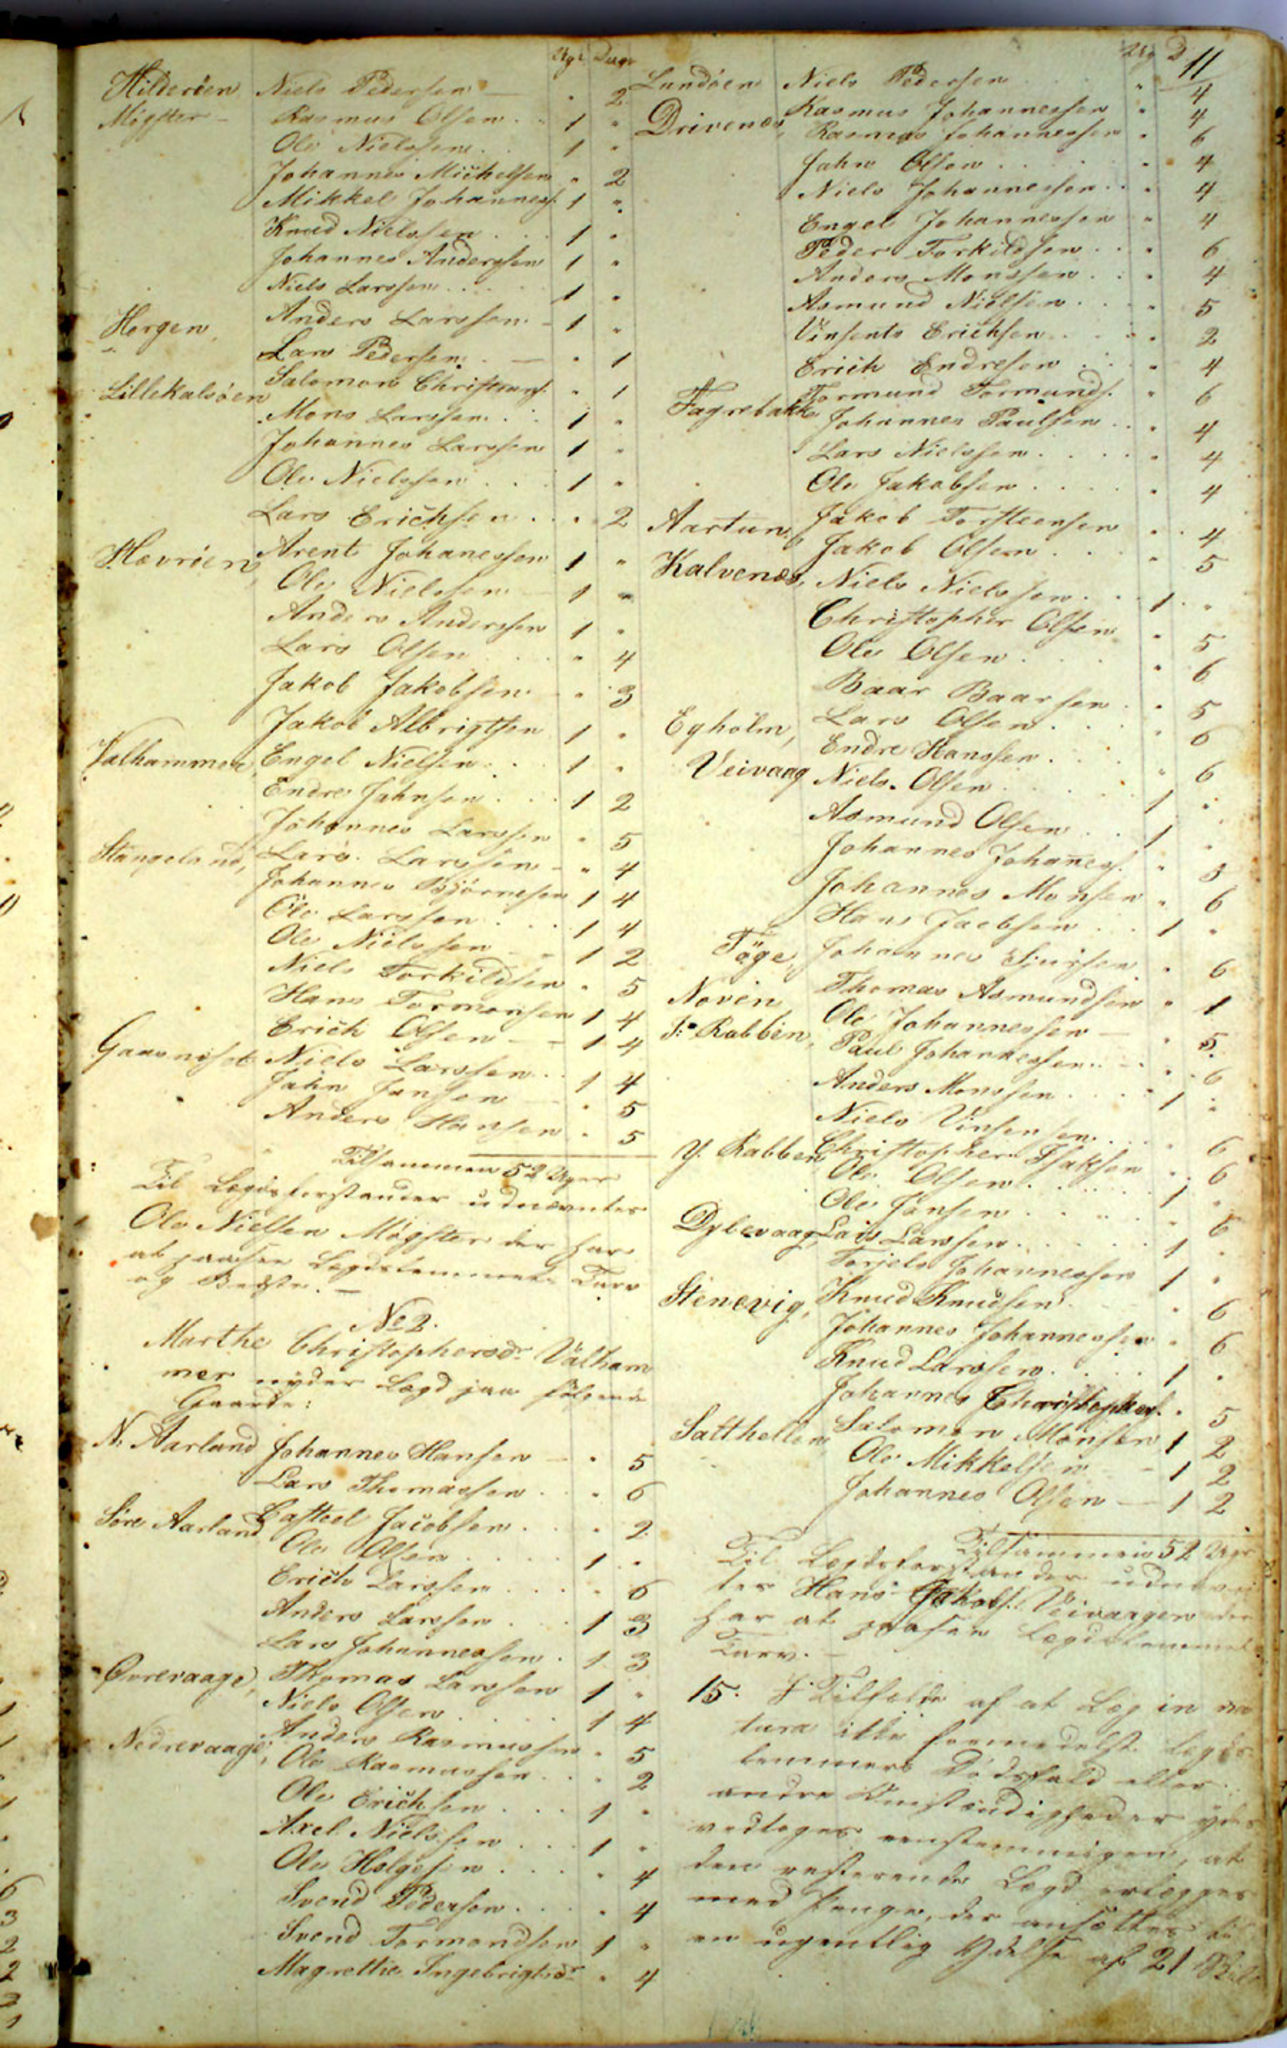 11
Uger Dage
Hilderöen Niels Pedersen " 2
Mögster Rasmus Olsen 1 "
Ole Nielssen 1 "
Johannes Michelsen " 2
Mikkel Johanness. 1 "
Knud Nielssen 1 "
Johannes Anderssen 1 "
Niels Larssen 1 "
Horgen Anders Larssen 1 "
Lars Pedersen " 1
Lillekalsöen Salomon Christians. " 1
Mons Larssen 1 "
Johannes Larssen 1 "
Ole Nielssen 1 "
Lars Erichsen " 2
Hevröen, Arent Johanessen 1 "
Ole Nielssen 1 "
Anders Anderssen 1 "
Lars Olsen " 4
Jakob Jakobsen " 3
Jakob Albrigtsen 1 "
Valhammer, Engel Nielsen 1 "
Endre Jahnsen 1 2
Johannes Larssen " 5
Stangeland, Lars Larssen " 4
Johannes Björnesen 1 4
Ole Larssen 1 4
Ole Nielssen 1 2
Niels Torkildsen " 5
Hans Tormonsen 1 4
Erich Olsen 1 4
Niels Larssen 1 4
Jahn Jansen " 5
Anders Hansen " 5
Tilsammen 52 Uger
Til Lægdsforstander udnævntes
Ole Nielsen Mögster der har
at paasee Lægdslemmets Tarv
og Bedste.
No 2.
Marthe Christophersdr Valham
mer nyder Lægd paa fölgende
Gaarde:
N. Aarland Johannes Hansen " 5
Lars Thomassen " 6
Söre Aarland Casteel Jacobsen " 2
Ole Olsen 1 "
Erich Larssen " 6
Anders Larssen 1 3
Lars Johannessen 1 3
Övrevaage, Thomas Larssen 1 "
Niels Olsen 1 4
Nedrevaage, Anders Rasmussen " 5
Ole Rasmussen " 2
Ole Erichsen 1 "
Axel Nielssen 1 "
Ole Helgesen " 4
Svend Pedersen " 4
Svend Tormondsen 1 "
Magrethe Ingebrigtsdr " 4
Ug D
Lundöen Niels Pedersen " 4
Drivenes, Rasmus Johannessen " 4
Rasmus Johannessen " 6
Jahn Olsen " 4
Niels Johannessen " 4
Engel Johannessen " 4
Peder Torkildsen " 6
Anders Monssen " 4
Asmund Nielsen " 5
Vinsents Erichsen " 2
Erich Endresen " 4
Fagrebakke Tormund Tormunds. " 6
Johannes Paulsen " 4
Lars Nielssen " 4
Ole Jakobsen " 4
Aartun, Jakob Torsteensen " 4
Jakob Olsen " 5
Kalvenes, Niels Nielssen 1 "
Christopher Olsen " 5
Ole Olsen " 6
Baar Baarsen " 5
Egholm, Lars Olsen " 6
Endre Hanssen " 6
Veivaag Niels Olsen 1 "
Asmund Olsen 1 "
Johannes Johaness. " 3
Johannes Monsen " 6
Hans Jacobsen 1 "
Töge, Johannes Sjursen " 6
Novin Thomas Asmundsen " 1
Ole Johannessen " 5
I. Rabben, Paul Johannessen " 6
Anders Monssen 1 "
Niels Vinsensen " 6
Y. Rabben Christopher Isaksen " 6
Ole Olsen 1 "
Ole Jansen " 6
Dyblevaag, Lars Larssen 1 "
Torjels Johannessen 1 "
Stenevig, Knud Knudsen " 6
Johannes Johannessen " 6
Knud Larssen 1 "
Johannes Christophers. " 5
Satthellen, Salomon Monsen 1 2
Ole Mikkelsen 1 2
Johannes Olsen 1 2
Tilsammen 52 Uger
Til Lægdsforstander udnævn
tes Hans Jakobs. Veivaagen der
har at paasee Lægdslemmets
Tarv.
15. I Tilfælde af at Læg in na
tura ikke formedelst Lægds
lemmers Dödsfald eller
andre Omstændigheder ydes
vedtoges eenstemmigen, at
den resterende Lægd erlægges
med Penge, der ansættes til
en ugentlig Ydelse af 21